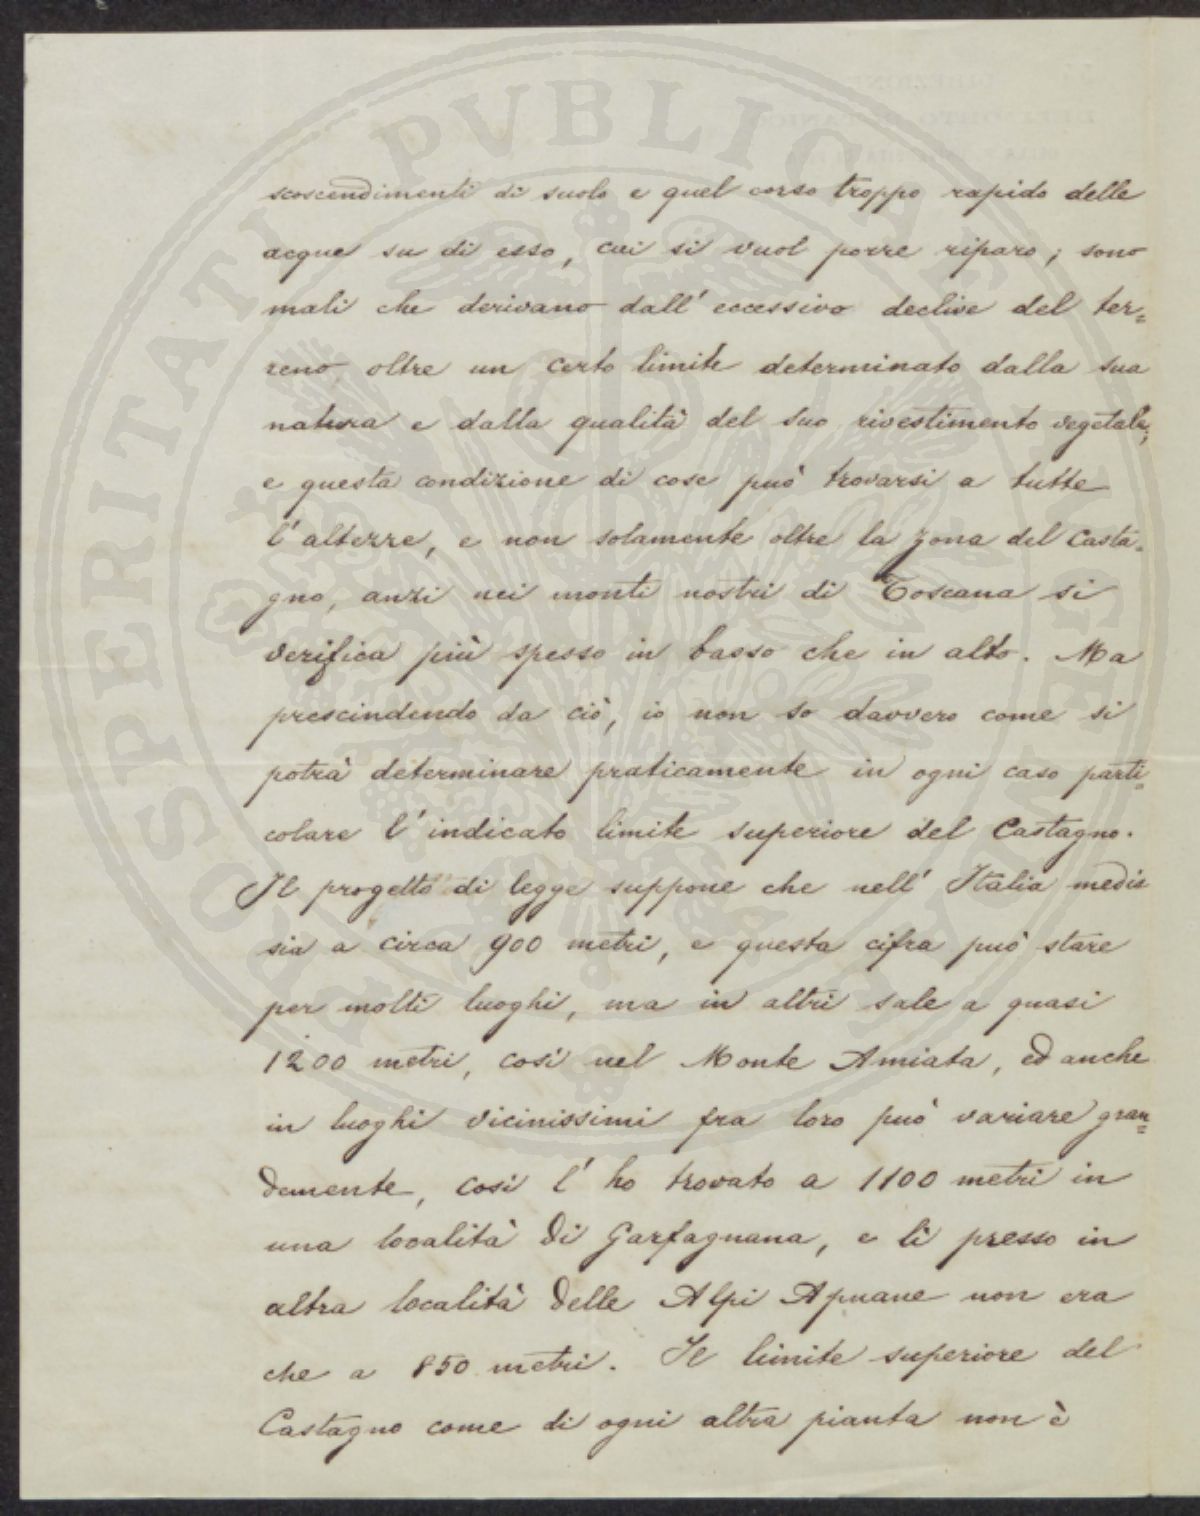 scoscendimenti di suolo e quel corso troppo rapido delle
acque su di esso, cui si vuol porre riparo; sono
mali che derivano dall' eccessivo declive del ter=
reno oltre un certo limite determinato dalla sua
natura e dalla qualità del suo rivestimento vegetale;
e questa condizione di cose può trovarsi a tutte
l' altezze, e non solamente oltre la zona del Casta=
gno, anzi nei monti nostri di Toscana si
verifica più spesso in basso che in alto. Ma
prescindendo da ciò, io non so davvero come si
potrà determinare praticamente in ogni caso parti=
colare l' indicato limite superiore del Castagno.
Il progetto di legge suppone che nell' Italia media
sia a circa 900 metri, e questa cifra può stare
per molti luoghi, ma in altri sale a quasi
1200 metri, così nel Monte Amiata, ed anche
in luoghi vicinissimi fra loro può variare gran=
demente, così l' ho trovato a 1100 metri in
una località di Garfagnana, e lì presso in
altra località delle Alpi Apuane non era
che a 850 metri. Il limite superiore del
Castagno come di ogni altra pianta non è
PROSPERITATI PVBLICAE AVGENDAE